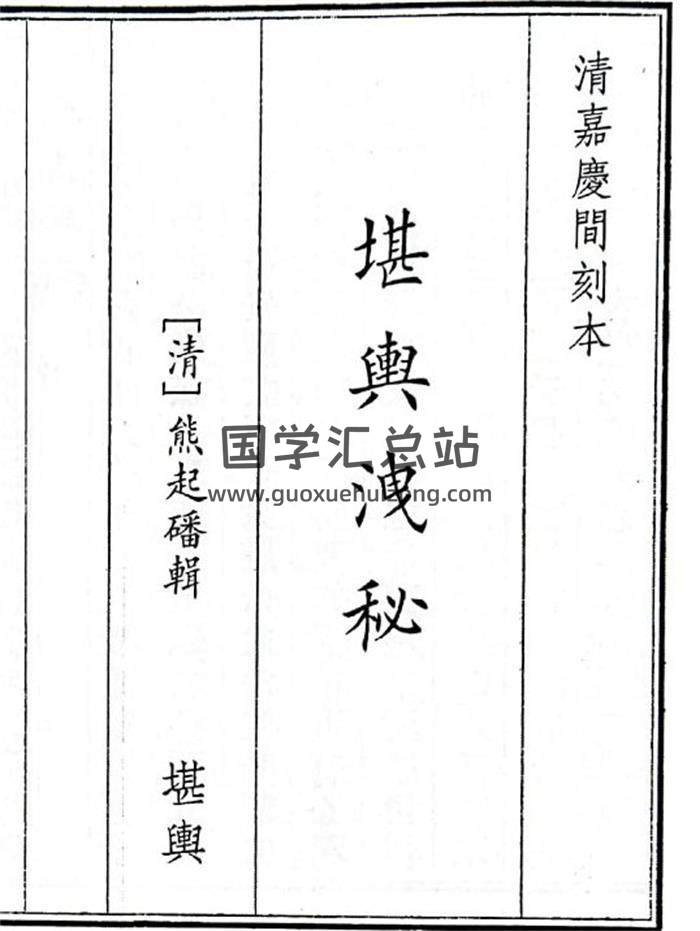 清嘉慶間刻本
堪輿洩秘
[清]熊起磻輯
堪輿
国学汇总站
www.guoxuehuizong.com